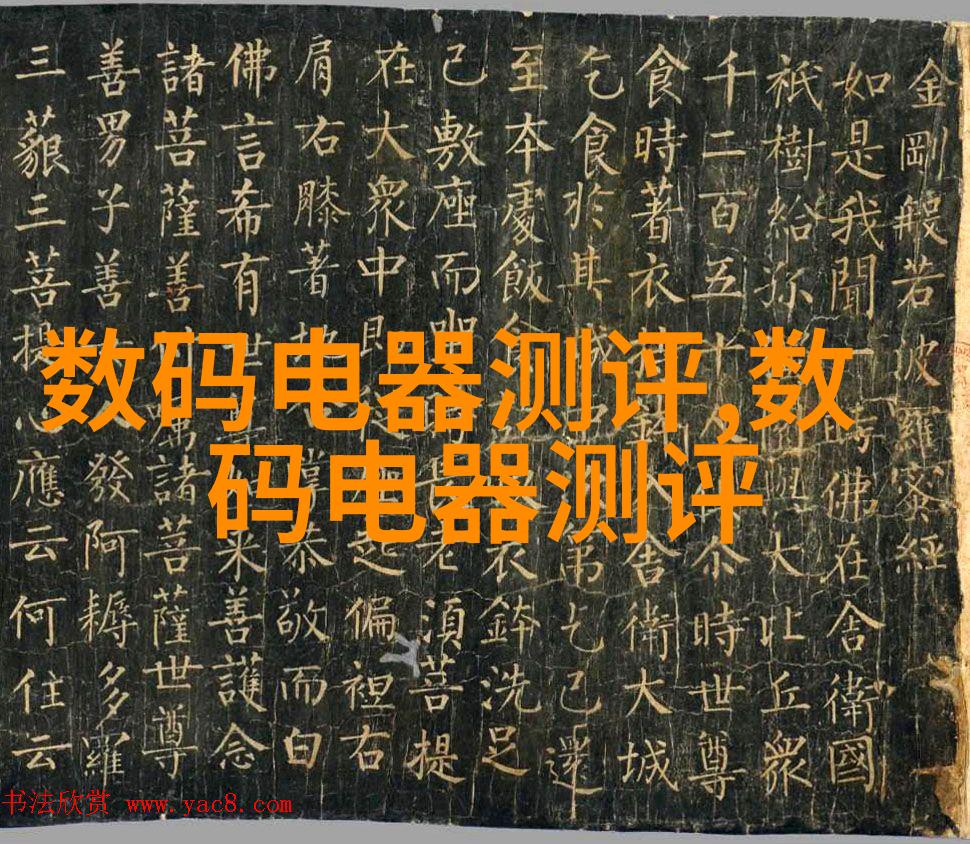 金剛般若波羅蜜經
如是我聞一時佛在舍衛國
祇樹給孤園與大比丘衆
千二百五十人尒時世尊
食時著衣入舍衛大城
乞食於其城弟乞已還
至本處飯食衣鉢洗足
已敷座而坐長老湏菩提
在大衆中即從起偏袒右
肩右膝著地掌恭敬而白
佛言希有世尊来善護念
諸菩薩善嘱諸菩薩世尊
善男子善人發阿耨多羅
三藐三菩提心應云何住云
数码电器测评,数
码电器测评
书法欣赏 www.yac8.com